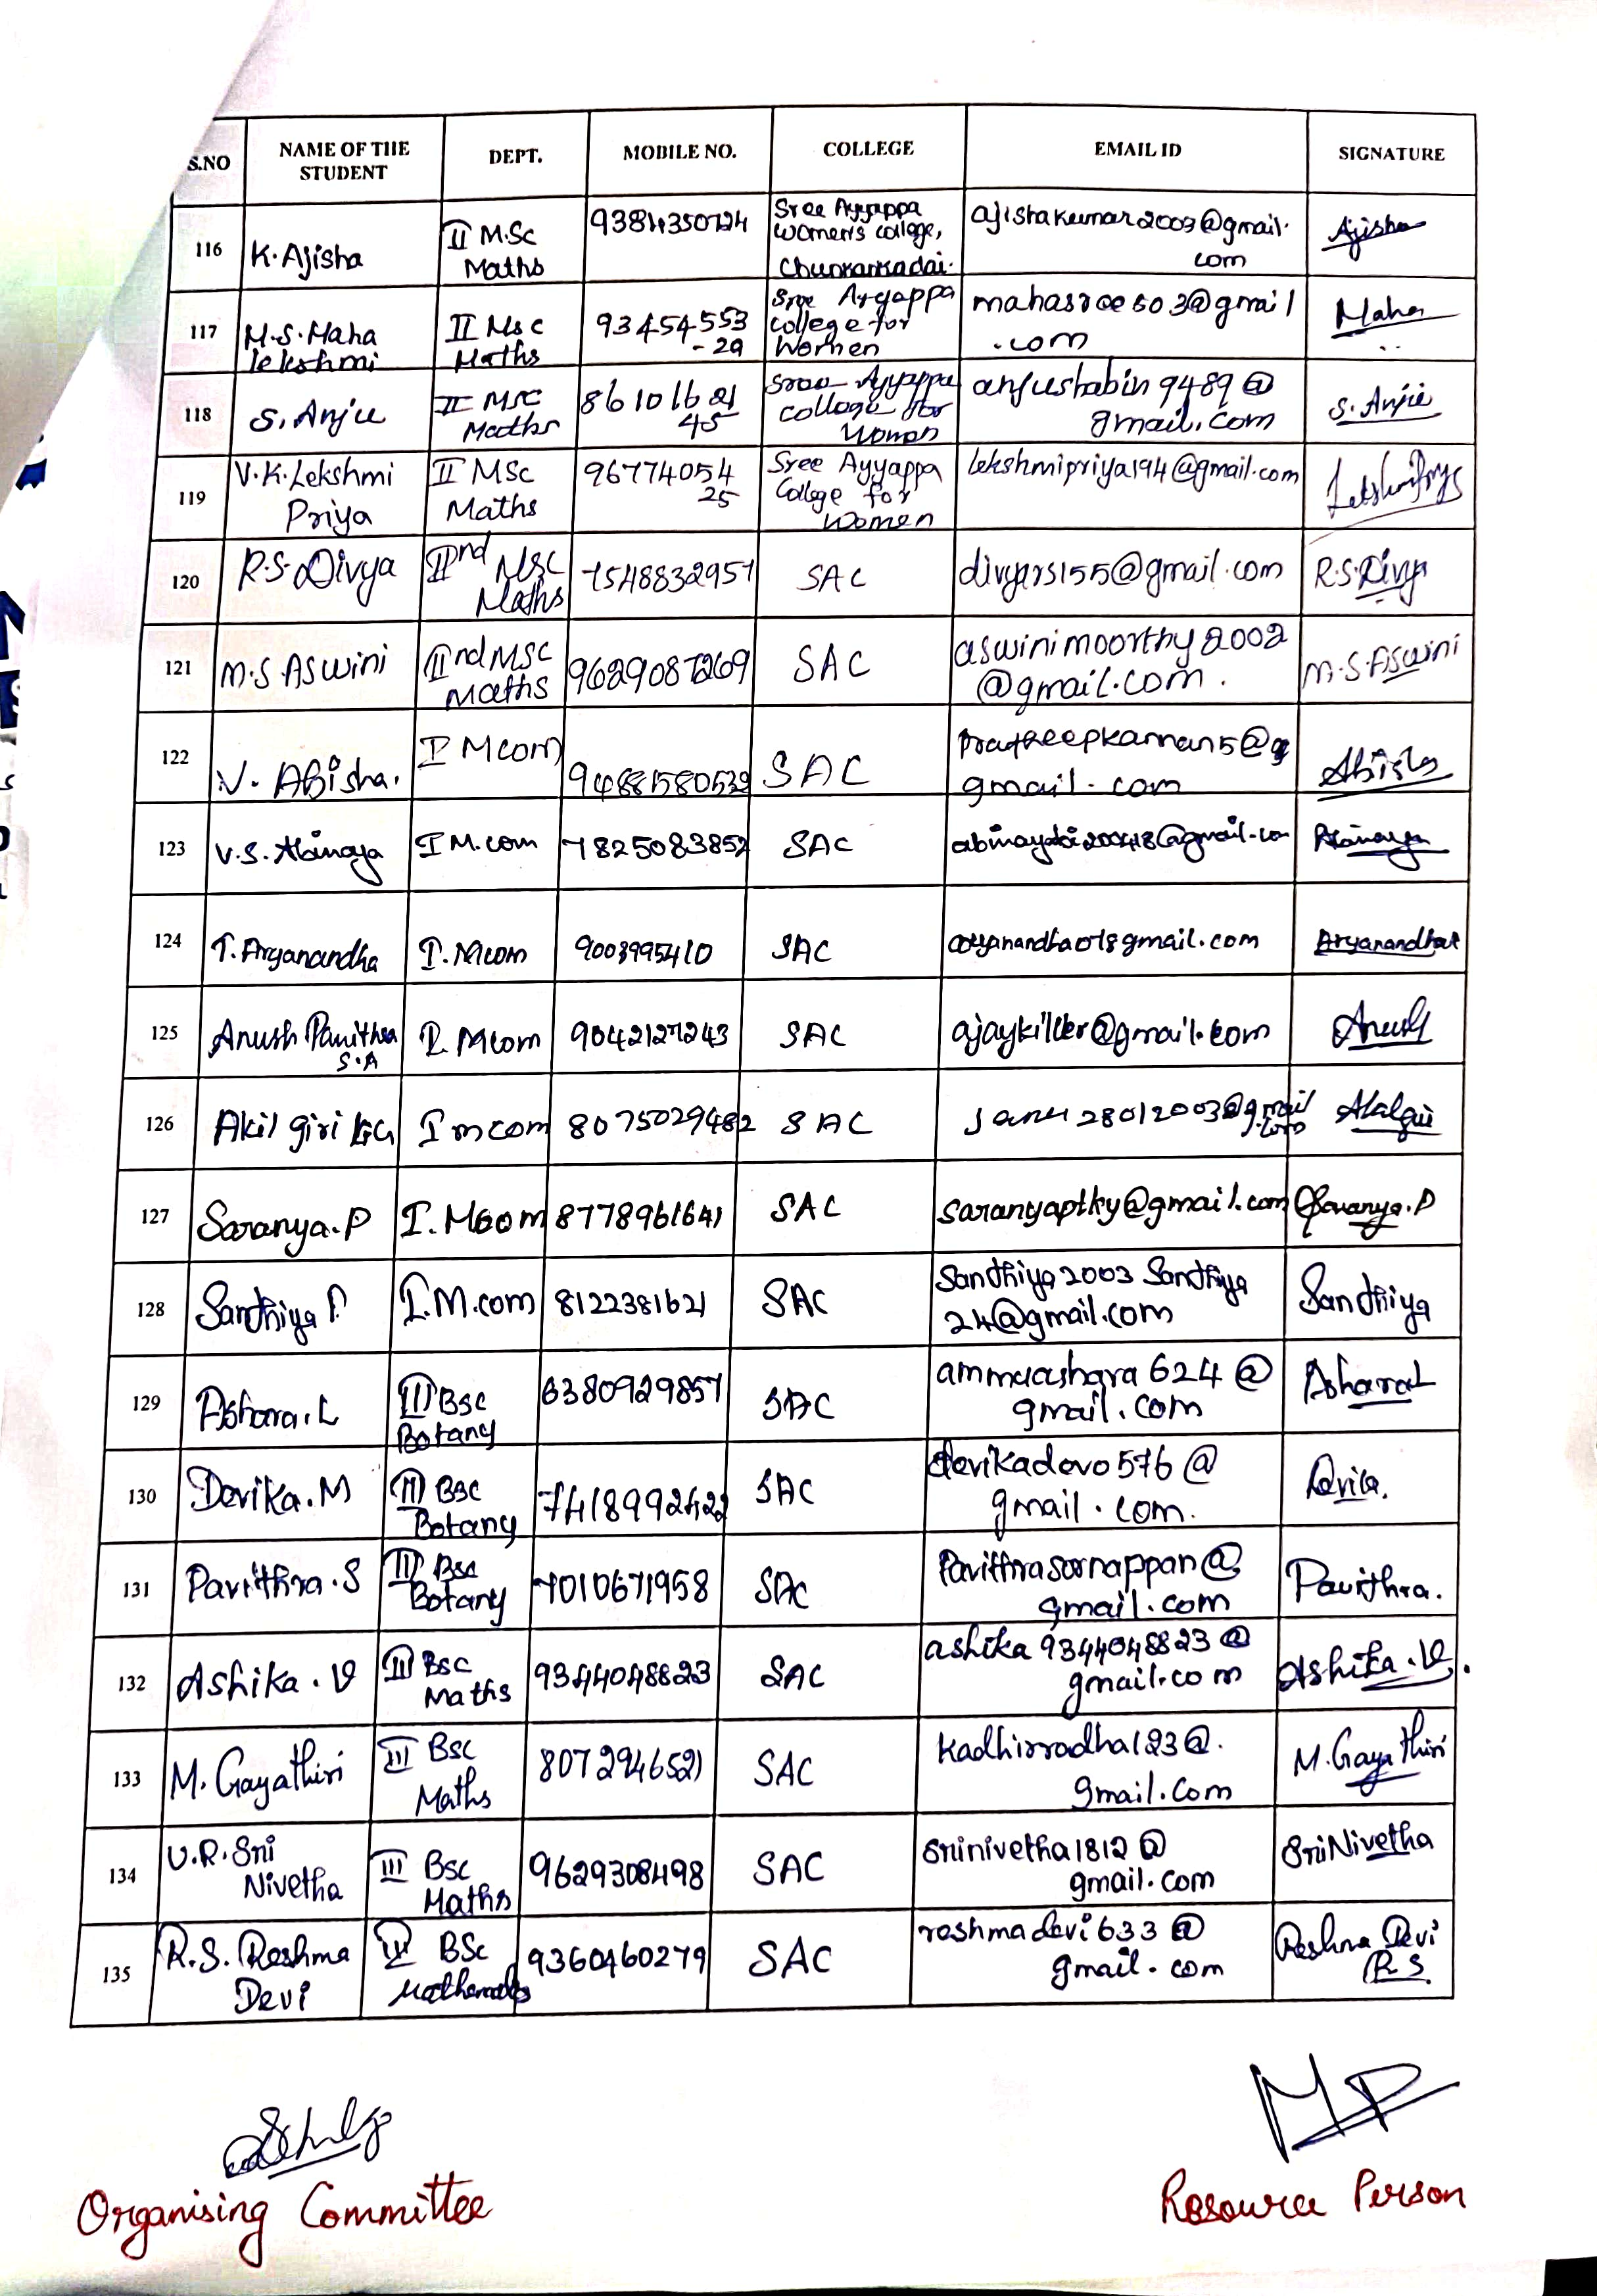 S.NO NAME OF THE STUDENT DEPT. MOBILE NO. COLLEGE EMAIL ID SIGNATURE
116 K. Ajisha II M.Sc Maths 9384350724 Sree Ayyappa Women's college, Chunkankadai. ajishakumar2003@gmail.com Ajisha
117 M.S. Maha lekshmi II Msc Maths 93454553-29 Sree Ayyappa college for Women mahasree503@gmail.com Maha
118 S. Anju II MSC Maths 8610162145 Sree Ayyappa college for Women anjushabin9489@gmail.com S. Anju
119 V.K. Lekshmi Priya II MSc Maths 9677405425 Sree Ayyappa College for Women lekshmipriya194@gmail.com
120 R.S. Divya IInd Msc Maths 7548832957 SAC divyars155@gmail.com R.S. Divya
121 M.S. Aswini IInd MSc Maths 9629087269 SAC aswinimoorthy2002@gmail.com. M.S. Aswini
122 V. Abisha. I Mcom 94881580532 SAC gmail.com Abisha
123 V.S. Abinaya I M.com 7825083852 SAC Abinaya
124 T. Aryanandha I. Mcom 9003995410 SAC Aryanandha
125 Anush Pavithra S.A I. Mcom 9042127243 SAC ajaykiller@gmail.com Anush
126 Akil giri I mcom 8075029482 SAC
127 Saranya.P I. Mcom 8778961641 SAC saranyapthy@gmail.com Saranya.P
128 Sandhiya P. I.M.com 8122381621 SAC Sandhiya2003 Sandhiya 24@gmail.com Sandhiya
129 Ashara.L III Bsc Botany 6380929857 SAC ammuashara624@gmail.com AsharaL
130 Devika.M III BSC Botany 7418992422 SAC devikadevo576@gmail.com. Devika.
131 Pavithra.S III Bsc Botany 7010671958 SAC Pavithrasornappan@gmail.com Pavithra.
132 Ashika.V III Bsc Maths 9344048823 SAC ashika9344048823@gmail.com Ashika.V.
133 M. Gayathiri III Bsc Maths 8072946521 SAC Kadhirradha123@.gmail.com M. Gayathiri
134 U.R. Sri Nivetha III Bsc Maths 9629308498 SAC Srinivetha1812@gmail.com SriNivetha
135 R.S. Reshma Devi III BSc Mathematics 9360460279 SAC reshmadevi633@gmail.com Reshma Devi R.S.
Organising Committee Resource Person